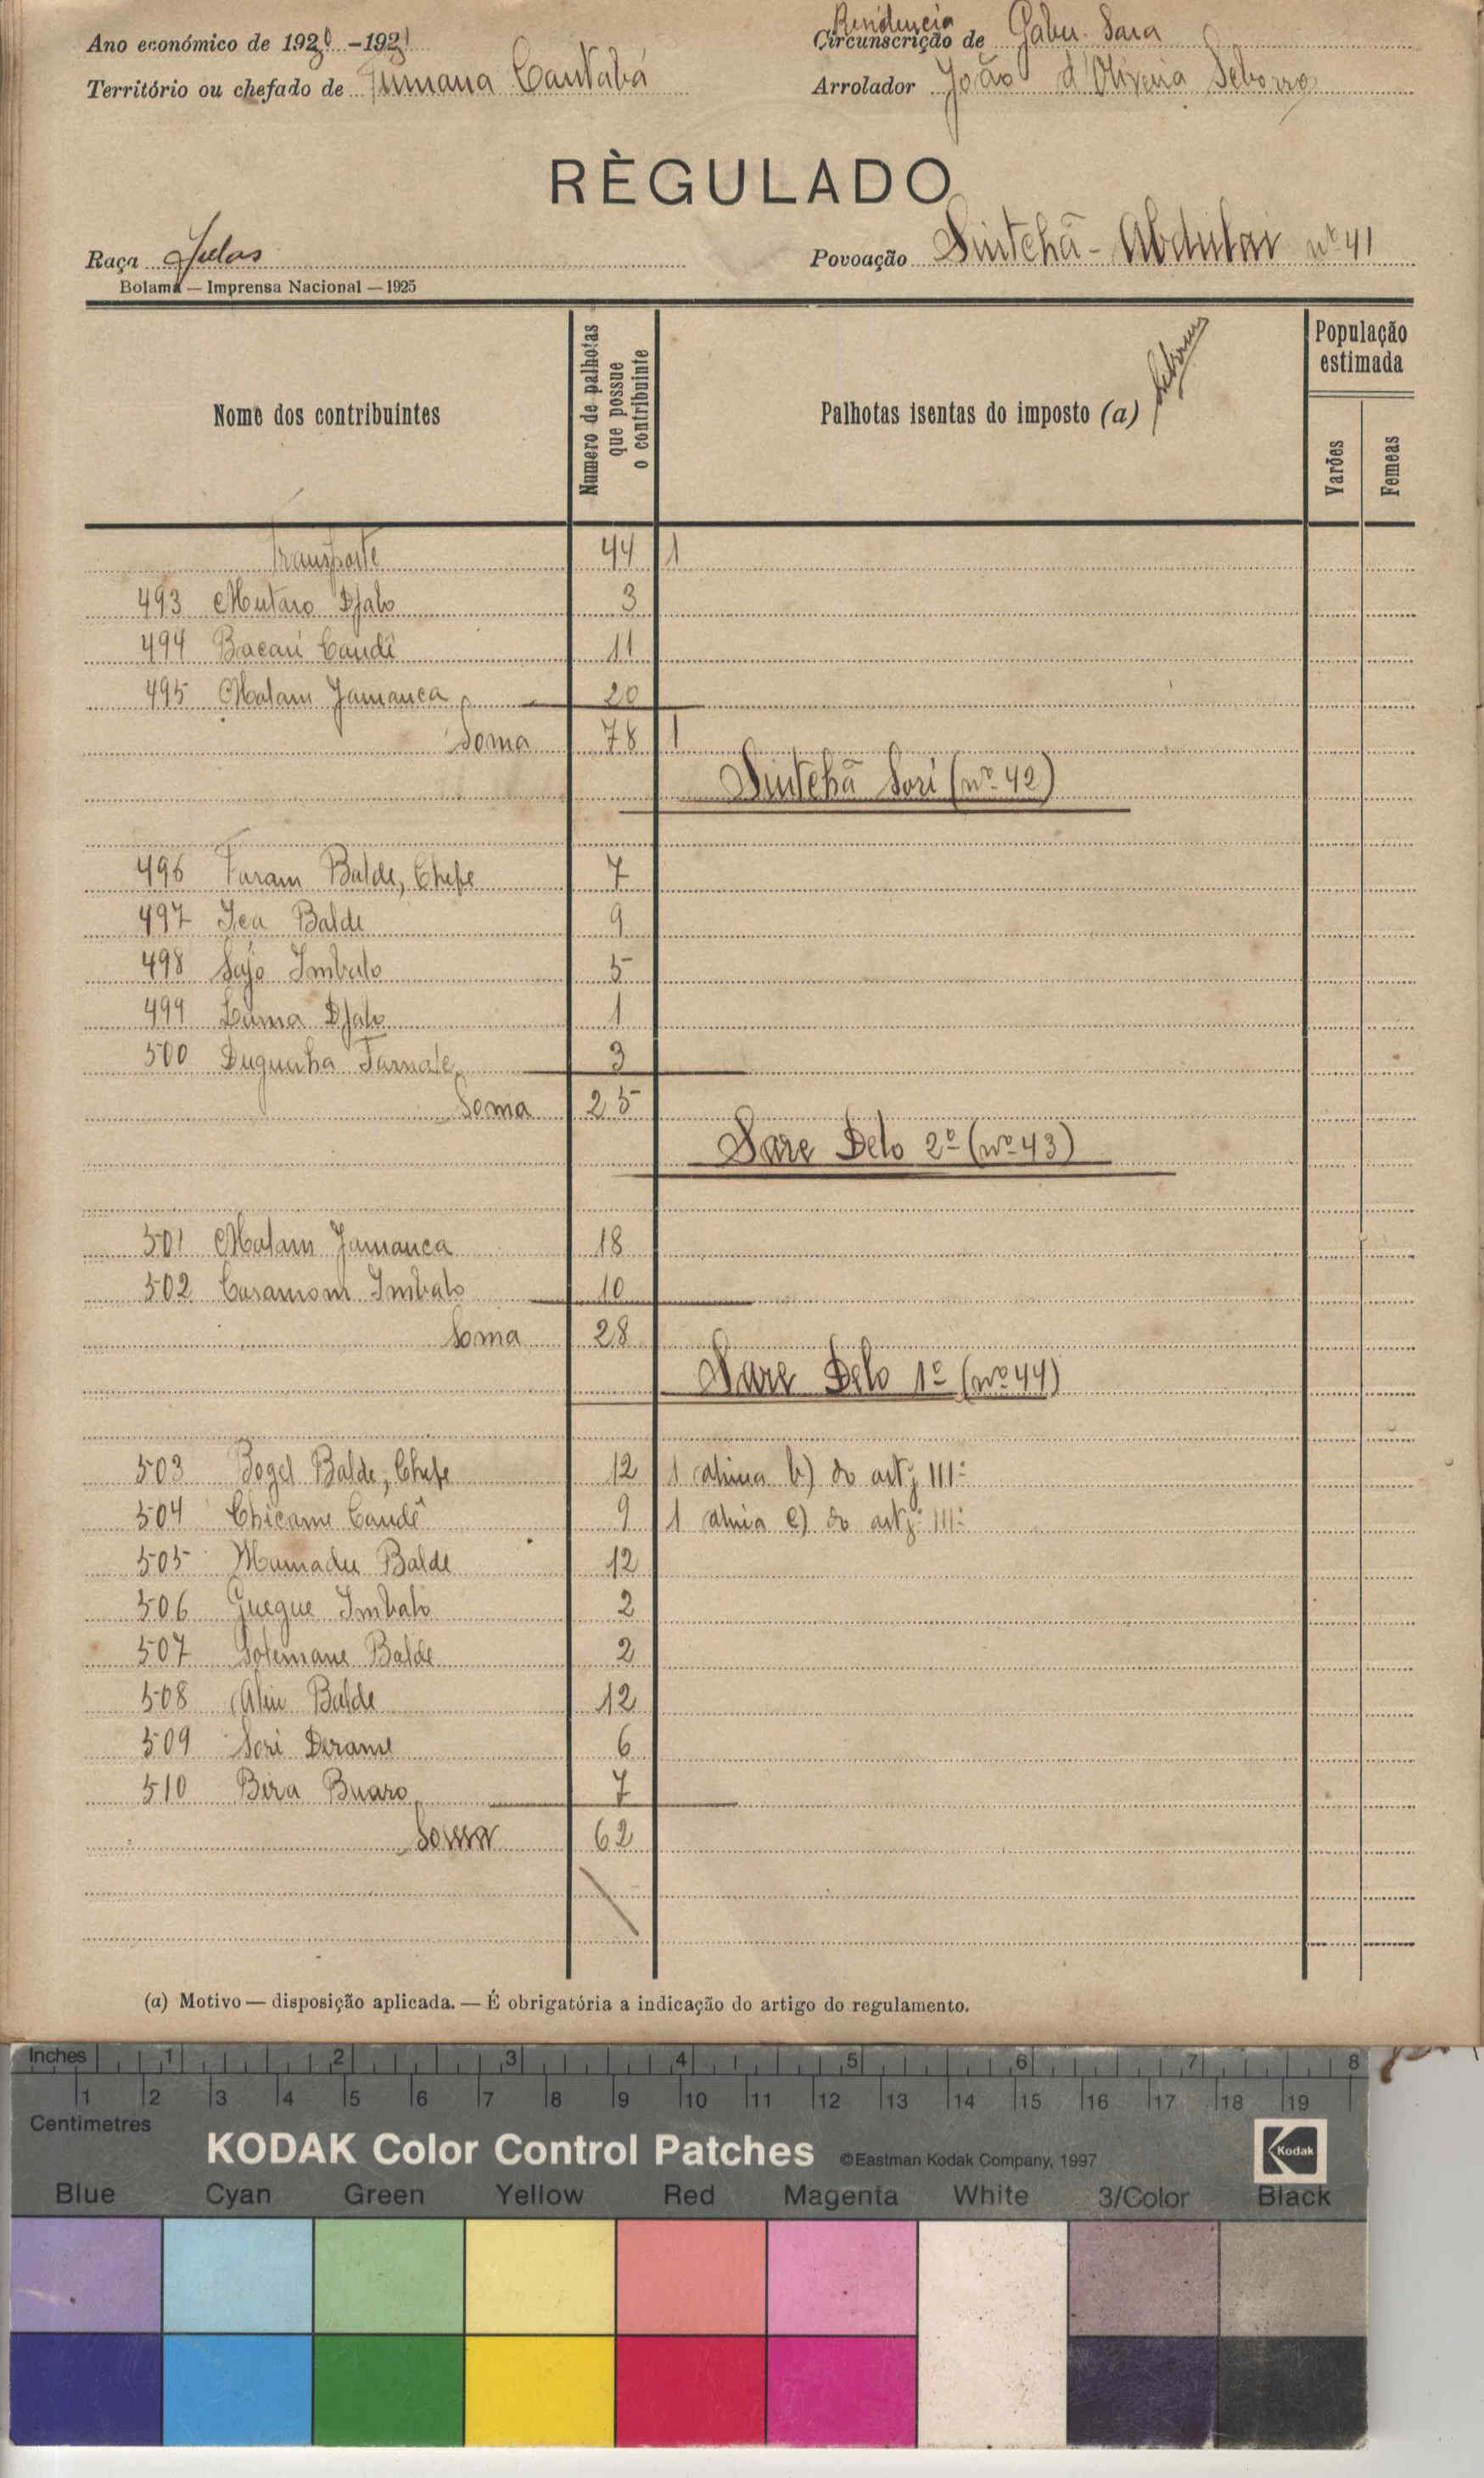 Ano económico de 1930 -1931
Residencia
Circunscrição de Gabu-Sara
Território ou chefado de Tumana Cantabá
Arrolador João d'Oliveira
RÈGULADO
Raça Fulas
Povoação Sintchã-Abdulai nº 41
Bolama — Imprensa Nacional — 1925
Nome dos contribuintes
Numero de palhotas que possue o contribuinte
Palhotas isentas do imposto (a)
População estimada
Varões
Femeas
Transporte 44 1
493 Mutaro Djalo 3
494 Bacari Candê 11
495 Malam Jamanca 20
Soma 78 1
Sintchã Sori (nº 42)
496 Faram Balde, Chefe 7
497 Iea Balde 9
498 Sajo Imbalo 5
499 Duma Djalo 1
500 3
Soma 25
Sare Delo 2º (nº 43)
501 Malam Jamanca 18
502 Caramom Imbalo 10
Soma 28
Sare Delo 1º (nº 44)
503 Bogel Balde, Chefe 12 1 alinea b) do artº III:
504 Chicame Candê 9 1 alinia e) do artº III:
505 Mamadu Balde 12
506 Guegue Imbalo 2
507 Solemane Balde 2
508 Aliu Balde 12
509 Sori Derame 6
510 Bira Buaro 7
Soma 62
(a) Motivo — disposição aplicada. — É obrigatória a indicação do artigo do regulamento.
Inches 1 2 3 4 5 6 7 8
1 2 3 4 5 6 7 8 9 10 11 12 13 14 15 16 17 18 19
Centimetres
KODAK Color Control Patches ©Eastman Kodak Company, 1997 Kodak
Blue Cyan Green Yellow Red Magenta White 3/Color Black